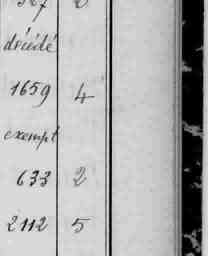 décédé
1659 4
exempt
633 2
2112 5